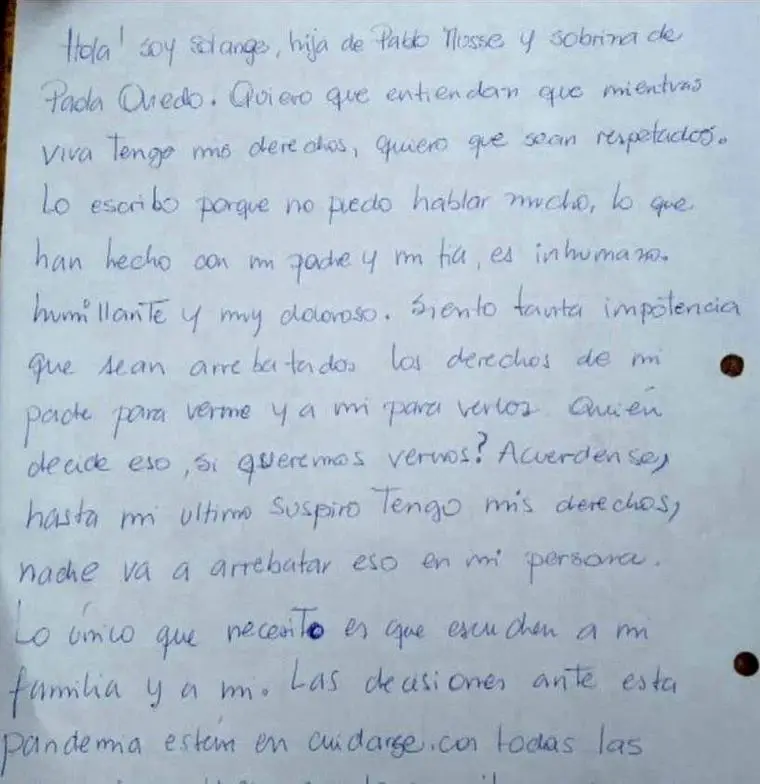 Hola! soy Solange, hija de Pablo Musse y sobrina de
Paola Oviedo. Quiero que entiendan que mientras
viva Tengo mis derechos, quiero que sean respetados.
Lo escribo porque no puedo hablar mucho, lo que
han hecho con mi padre y mi tia, es inhumano.
humillanTe y muy doloroso. Siento tanta impotencia
que sean arrebatados los derechos de mi
padre para verme y a mi para verlos. Quién
decide eso, si queremos vernos? Acuerdense,
hasta mi ultimo suspiro Tengo mis derechos,
nadie va a arrebatar eso en mi persona.
Lo único que necesiTo es que escuchen a mi
familia y a mi. Las decisiones ante esta
pandemia están en cuidarse, con todas las